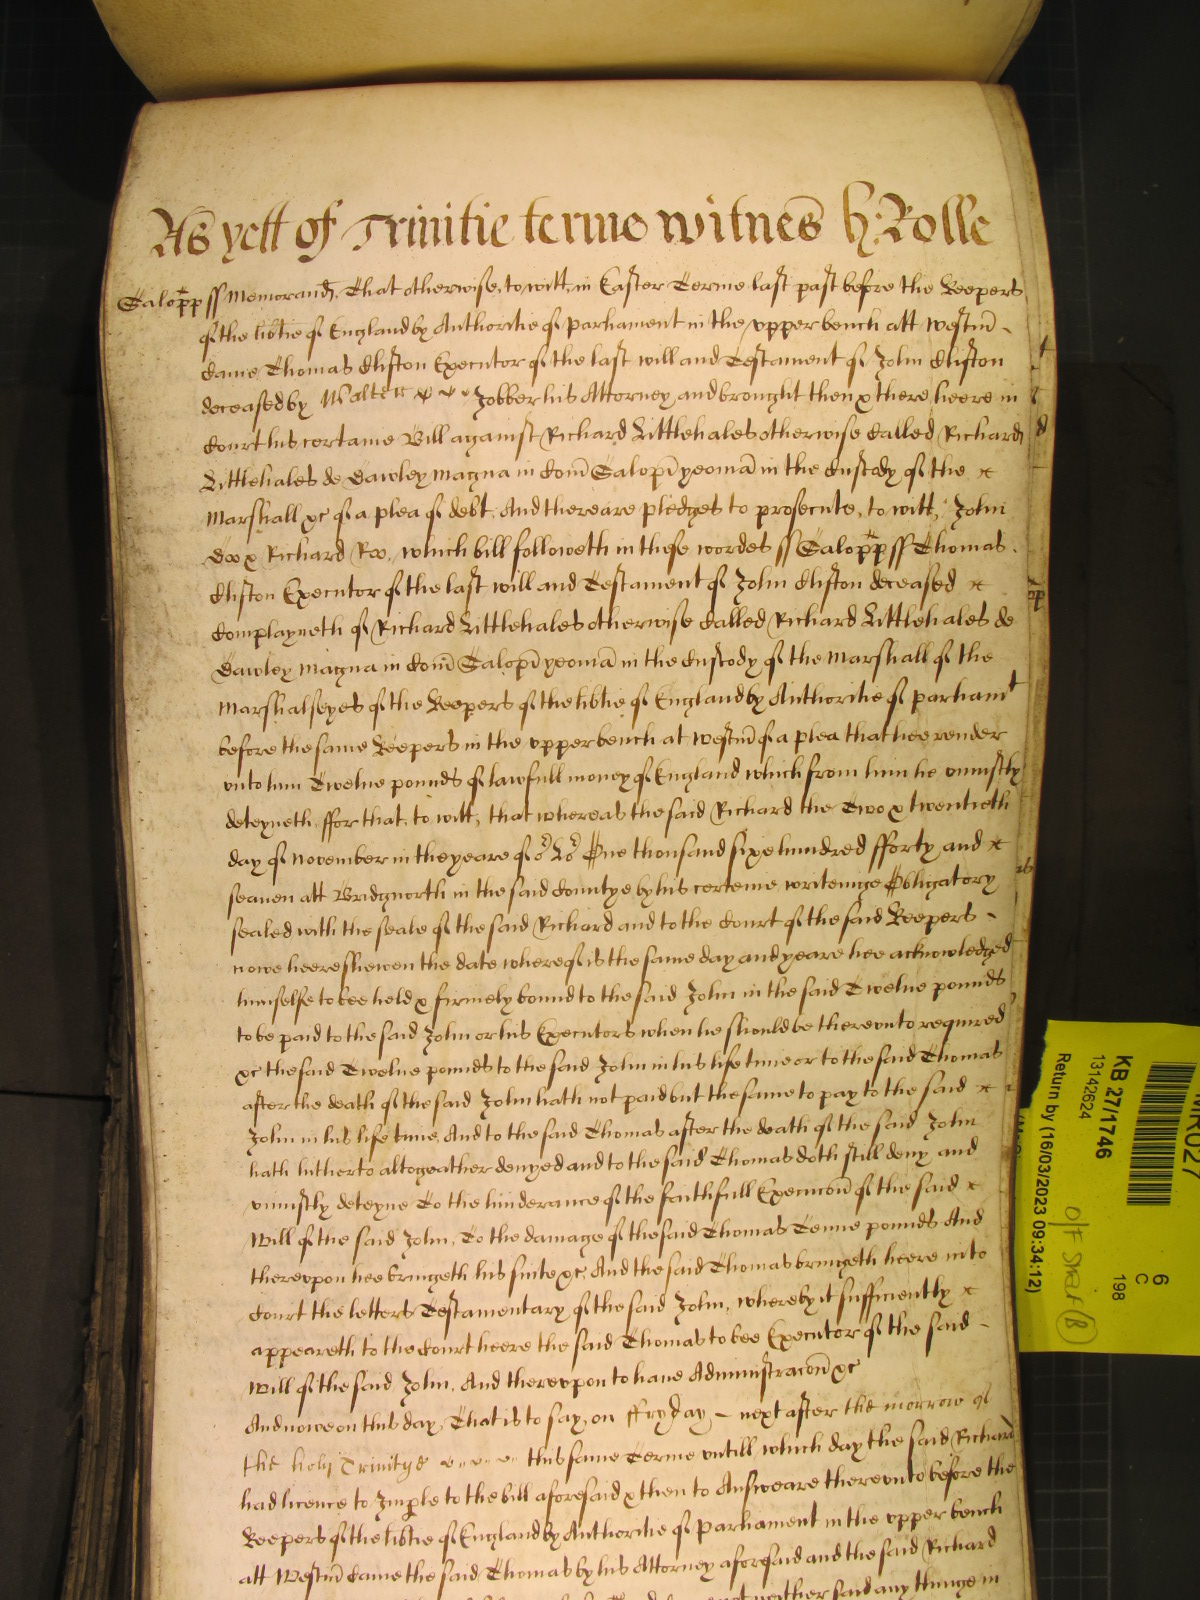 As yett of Trinitie terme witnes H: Rolle
Salopp ss Memorand, That otherwise, to witt, in Easter Terme last past before the Keepers
of the libtie of England by Authoritie of parliament in the upper bench att Westm̃
Came Thomas Clifton Executor of the last will and Testament of John Clifton
deceased by Walter Jobber his Attorney and brought then & there heere in
Court his certaine Bill against Richard Littlehales otherwise Called Richard
Littlehales de Dawley magna in Com̃ Salop̃ yeomã in the Custody of the
Marshall &c of a plea of debt, And there are pledges to prosecute, to witt, John
Doo & Richard Roo, which bill followeth in these wordes ss Salopp ss Thomas
Clifton Executor of the last will and Testament of John Clifton deceased
Complayneth of Richard Littlehales otherwise Called Richard Littlehales de
Dawley magna in Com̃ Salop̃ yeomã in the Custody of the Marshall of the
Marshalseyes of the Keepers of the libtie of England by Authoritie of parliamt
before the same Keepers in the upper bench at Westm̃ of a plea that hee render
unto him Twelve pounds of lawfull money of England which from him he uniustly
deteyneth, ffor that, to witt, that whereas the said Richard the Two & twentieth
day of November in the yeare of or Lord One thousand sixe hundred fforty and
seaven att Bridgnorth in the said Countye by his certeine writeinge Obligatory
sealed with the seale of the said Richard and to the Court of the said Keepers
nowe heere shewen the date whereof is the same day and yeare hee acknowledged
himselfe to bee held & firmely bound to the said John in the said Twelve pounds
to be paid to the said John or his Executors when he should be thereunto required
&c the said Twelve pounds to the said John in his life time or to the said Thomas
after the death of the said John hath not paid but the same to pay to the said
John in his life time, And to the said Thomas after the death of the said John
hath hitherto altogeather denyed and to the said Thomas doth still deny and
uniustly deteyne To the hinderance of the faithfull Execucoñ of the said
Will of the said John, To the damage of the said Thomas Tenne pounds And
thereupon hee bringeth his suite &c, And the said Thomas bringeth heere into
Court the letters Testamentary of the said John, whereby it sufficiently
appeareth to the Court heere the said Thomas to bee Executor of the said
Will of the said John, And thereupon to have Administracoñ &c
And nowe on this day, That is to say, on ffryday next after the morrow of
the holy Trinitye this same Terme untill which day the said Richard
had licence to Imple to the bill aforesaid & then to Answeare thereunto before the
Keepers of the libtie of England by Authoritie of parliament in the upper bench
att Westm̃ Came the said Thomas by his Attorney aforesaid and the said Richard
neither said any thinge in
KB 27/1746
13142624
Return by (16/03/2023 09:34:12)
6
C
198
O/F Shelf (B)